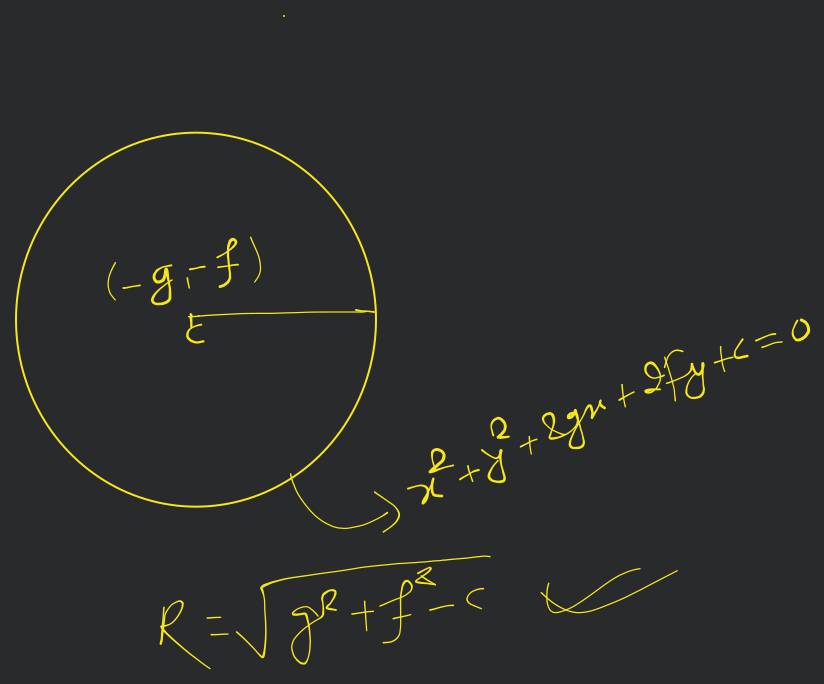 (-g,-f)
C
x²+y²+2gx+2fy+c=0
R=√g²+f²-c